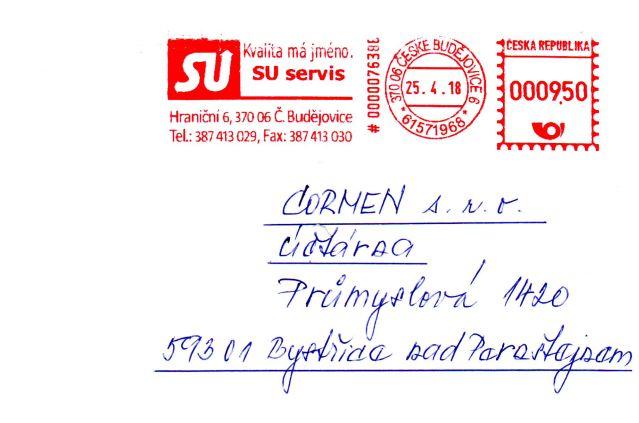 SU
Kvalita má jméno.
SU servis
Hraniční 6, 370 06 Č. Budějovice
Tel.: 387 413 029, Fax: 387 413 030
# 0000076386
370 06 ČESKÉ BUDĚJOVICE 6
25. 4. 18
* 61571968 *
ČESKÁ REPUBLIKA
000950
CORMEN s.r.o.
Účtárna
Průmyslová 1420
59301 Bystřice nad Pernštejnem